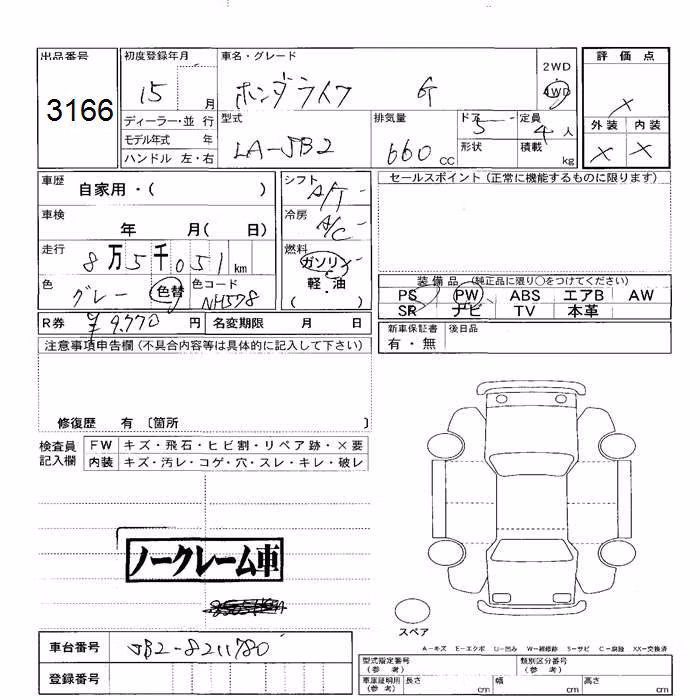 出品番号
3166
初度登録年月
15 月
車名・グレード
ホンダライフ G
2WD
4WD
評価点
×
外装 内装
× ×
ディーラー・並行
モデル年式 年
ハンドル 左・右
型式
LA-JB2
排気量
660 CC
ドア 5
形状
定員 4 人
積載 kg
車歴
自家用・( )
車検
年 月( 日)
走行
8万5千051 km
色
グレー 色替
色コード
NH578
シフト
A/T
冷房
A/C
燃料
ガソリン
軽・油
( )
セールスポイント (正常に機能するものに限ります)
装備品 (純正品に限り○をつけてください)
PS PW ABS エアB AW
SR ナビ TV 本革
R券 ¥9,770 円
名変期限 月 日
新車保証書
有・無
後日品
注意事項申告欄 (不具合内容等は具体的に記入して下さい)
修復歴 有 〔箇所 〕
検査員
記入欄
FW キズ・飛石・ヒビ割・リペア跡・×要
内装 キズ・汚レ・コゲ・穴・スレ・キレ・破レ
ノークレーム車
スペア
A-キズ E-エクボ U-凹み W-補修跡 S-サビ C-腐蝕 XX-交換済
車台番号
JB2-8211780
登録番号
型式指定番号
(参考)
類別区分番号
(参考)
車庫証明用
(参考)
長さ cm
幅 cm
高さ cm